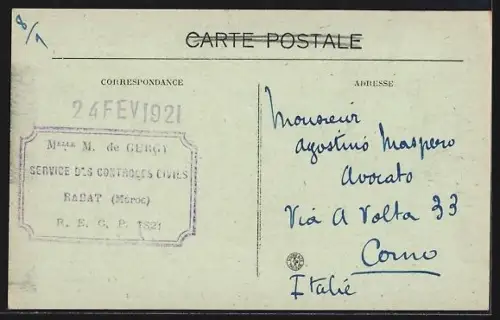 8/1
CARTE POSTALE
CORRESPONDANCE
ADRESSE
24 FEV 1921
Melle M. de GERGY
SERVICE DES CONTROLES CIVILS
RABAT (Maroc)
R. E. C. P. 1321
Monsieur
Agostino Maspero
Avocato
Via A Volta 33
Como
Italie